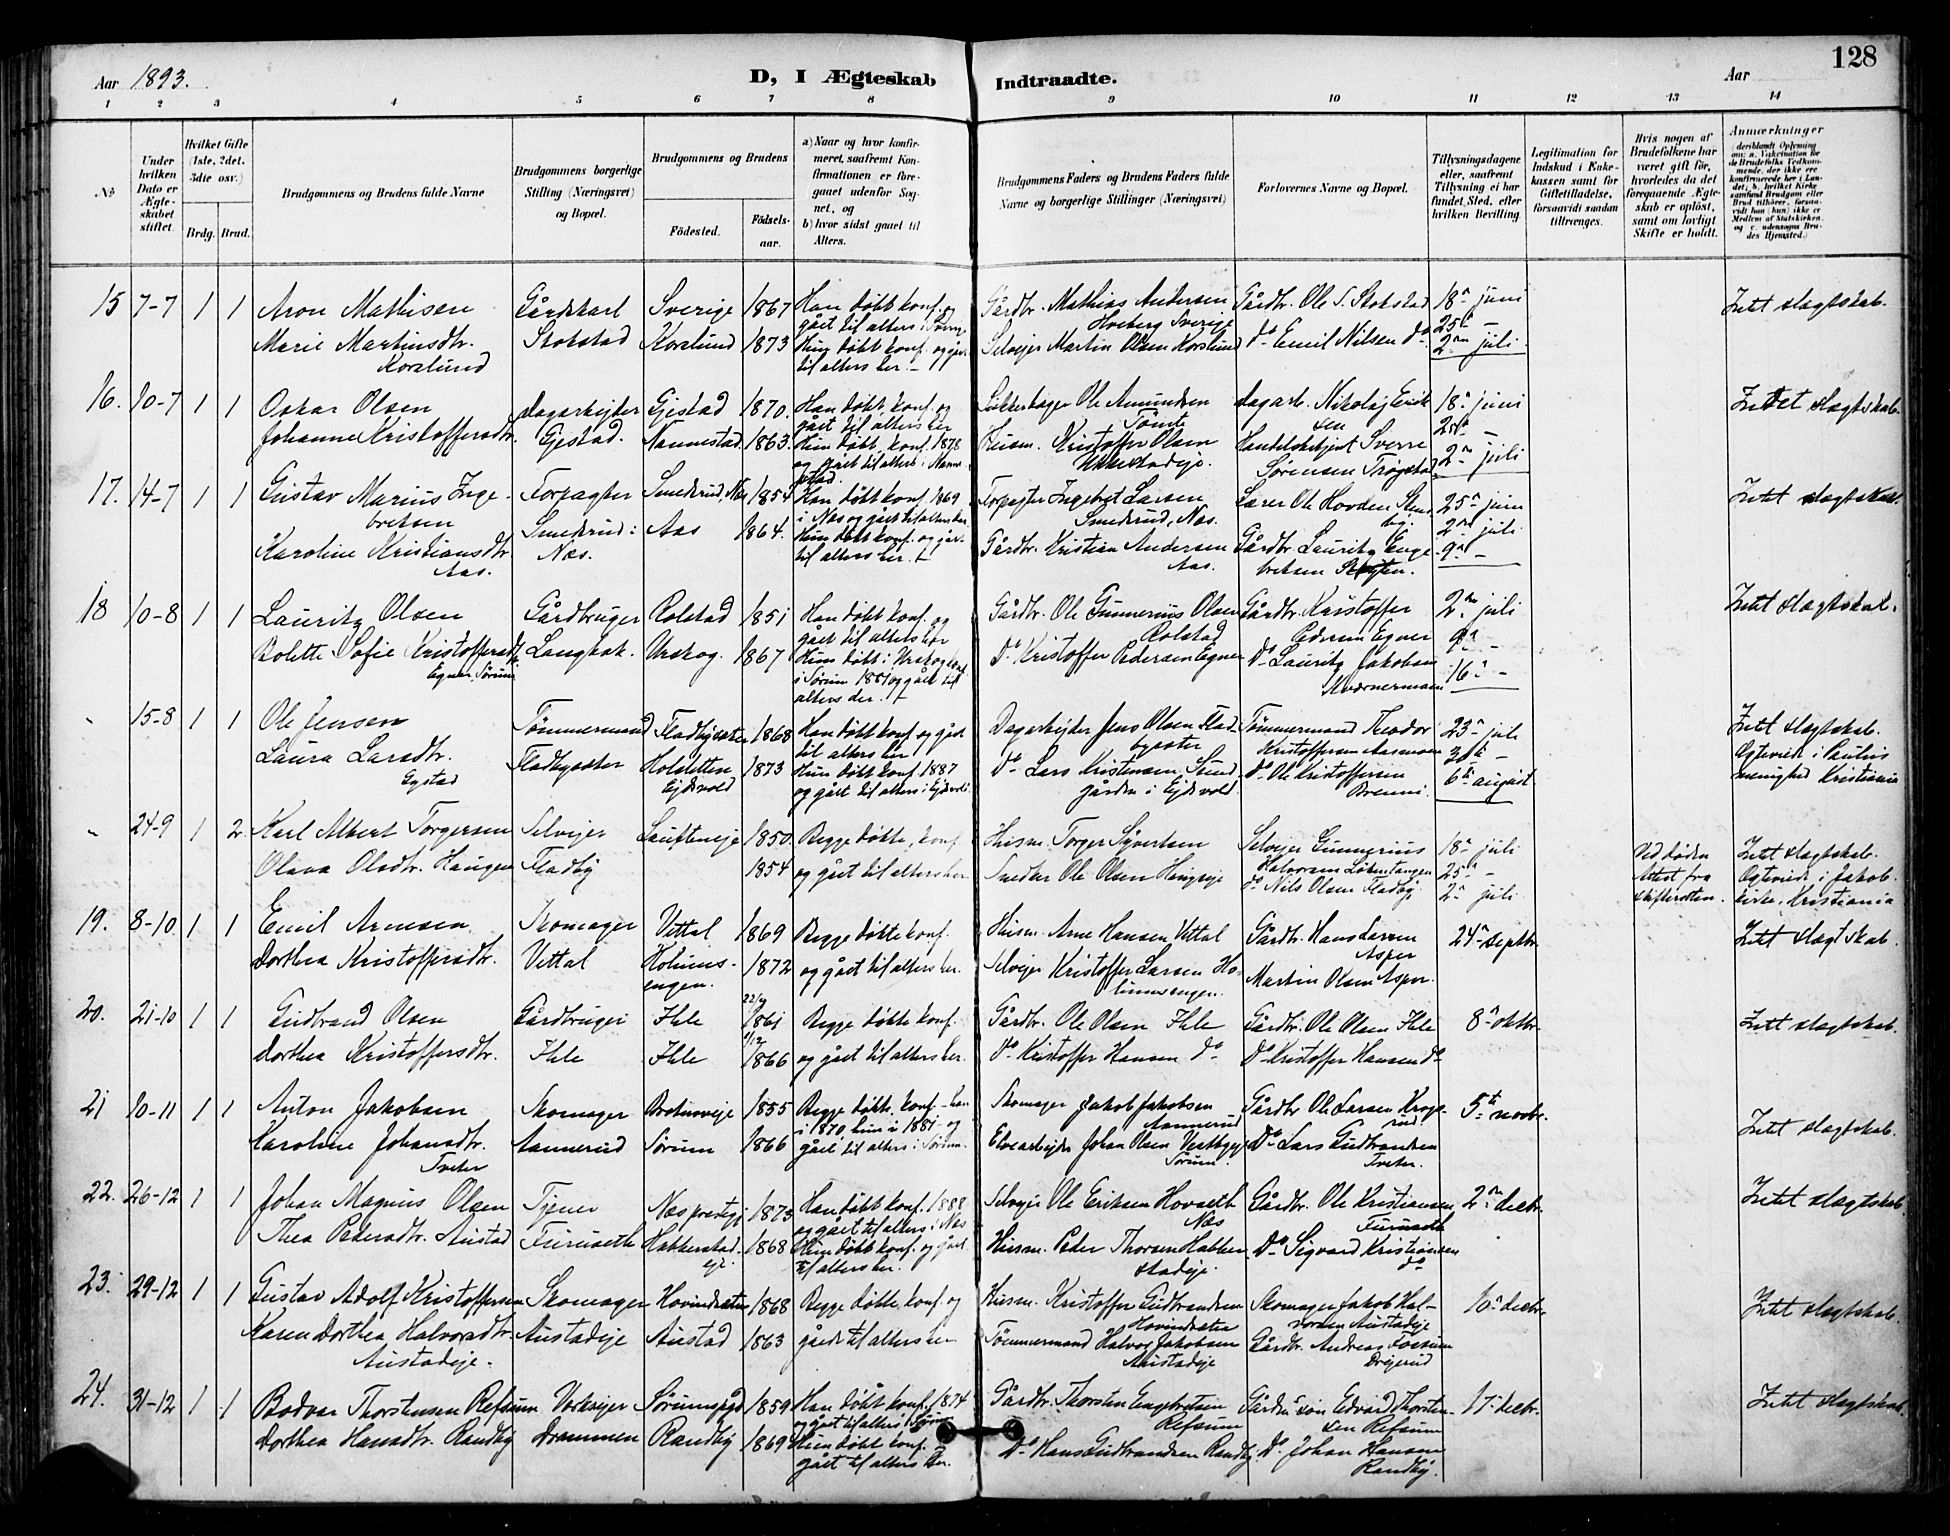 128
Aar 1893.
D, I Ægteskab Indtraadte.
Aar
1 2 3 4 5 6 7 8 9 10 11 12 13 14
No
Under hvilken Dato er Ægteskabet stiftet.
Hvilket Gifte (1ste, 2det, 3die osv.)
Brdg. Brud.
Brudgommens og Brudens fulde Navne
Brudgommens borgerlige Stilling (Næringsvei) og Bopæl.
Brudgommens og Brudens
Fødested.
Fødselsaar.
a) Naar og hvor konfirmeret, saafremt Konfirmationen er foregaaet udenfor Sognet, og
b) hvor sidst gaaet til Alters.
Brudgommens Faders og Brudens Faders fulde Navne og borgerlige Stillinger (Næringsvei)
Forlovernes Navne og Bopæl.
Tillysningsdagene eller, saafremt Tillysning ei har fundet Sted, efter hvilken Bevilling.
Legitimation for Indskud i Enkekassen samt for Giftetilladelse, forsaavidt saadan tiltrænges.
Hvis nogen af Brudefolkene har været gift før, hvorledes da det foregaaende Ægteskab er opløst, samt om lovligt Skifte er holdt.
Anmærkninger
15 7-7 1 1 Aron Mathisen Gårdskarl Sverige 1867 Han døbt konf. og gået til alters i Sverig. Gårdbr. Mathias Andersen Hoeberg Sverige Gårdbr. Ole S. Stokstad 18de juni Intet slægtskab.
Marie Martinsdtr. Korslund Stokstad Korslund 1873 Hun døbt konf. og gået til alters her. Selvejer Martin Olsen Korslund Do Emil Nilsen Do 25de - 2den juli
16. 10-7 1 1 Oskar Olsen Dagarbejder Gjestad 1870. Han døbt, konf. og gået til alters her Ole Amundsen Tømte Dagarb. Nikolaj Eriksen 18de juni Intet slægtskab.
Johanne Kristoffersdtr. Gjestad. Nannestad. 1863. Hun døbt, konf. 1878 og gået til alters i Nannestad. Husm. Kristoffer Olsen Handelsbetjent Sverre Sørensen Trøgstad 25de - 2den juli
17. 14-7 1 1 Gustav Marius Ingebretsen Forpagter Smedsrud, Næs 1854 Han døbt konf. 1869 i Næs og gået til alters her. Forpagter Ingebret Larsen Smedsrud, Næs. Lærer Ole Hovden 25de juni Intet slægtskab.
Karoline Kristiansdtr. Aas. Smedsrud i Næs. Aas 1864. Hun døbt konf. og gået til alters her. Gårdbr. Kristian Andersen Aas. Gårdbr. Lauritz Engebretsen 2den juli 9de -
18 10-8 1 1 Lauritz Olsen Gårdbruger Rolstad 1851 Han døbt konf. og gået til alters her Gårdbr. Ole Gunnerius Olsen Rolstad Gårdbr. Kristoffer Pedersen Egner 2den juli Intet slægtskab.
Bolette Sofie Kristoffersdtr. Egner, Sørum Langbak. Urskog. 1867 Hun døbt i Urskog konf. i Sørum 1881 og gået til alters der. Do Kristoffer Pedersen Egner Do Lauritz Jakobsen 9de - 16de -
" 15-8 1 1 Ole Jensen Tømmermand Fladbyseter 1868 Han døbt konf. og gået til alters her Dagarbejder Jens Olsen Fladbyseter Tømmermand Theodor Kristoffersen 23de juli Intet slægtskab.
Laura Larsdtr. Egstad Fladbyseter Ejdsvold 1873 Hun døbt konf. 1887 og gået til alters i Ejdsvold. Do Lars Kristensen i Ejdsvold. Do Ole Kristoffersen Brenni. 30te - 6te august. Egteviede i Paulus menighed Kristiania
" 24-9 1 2. Karl Albert Torgersen Selvejer 1850. Begge døbte, konf. Husm. Torger Syvertsen Selvejer Gunnerius Halvorsen Løkentangen 18de juli Ved døden Attest fra skifteretten. Intet slægtskab.
Olava Olsdtr. Haugen Fladby 1854 og gået til alters her. Snedker Ole Olsen Do Nils Olsen Fladby 25de - 2den juli Egteviede i Jakob. kirke, Kristiania
19. 8-10 1 1 Emil Arnesen Skomager Vittal 1869 Begge døbte konf. Husm. Arne Hansen Vittal Gårdbr. Hans Larsen Asper 24de septbr. Intet slægtskab.
Dorthea Kristoffersdtr. Vittal Holumsengen. 1872 og gået til alters her. Selvejer Kristoffer Larsen Holumsengen. Martin Olsen Asper.
20. 21-10 1 1 Gudbrand Olsen Gårdbruger Ihle 22/9 1861 Begge døbte konf. Gårdbr. Ole Olsen Ihle Gårdbr. Ole Olsen Ihle 8de oktbr. Intet slægtskab.
Dorthea Kristoffersdtr. Ihle Ihle 1866 og gået til alters her. Do Kristoffer Hansen Do Do Kristoffer Hansen Do
21 10-11 1 1 Anton Jakobsen Skomager 1855 Begge døbte, konf. han i 1870 hun i 1881 og gået til alters i Sørum. Skomager Jakob Jakobsen Aannerud Gårdbr. Ole Larsen 5te novbr. Intet slægtskab.
Karoline Johansdtr. Tveter Aannerud Sørum 1866 Elvearbejder Johan Olsen Vestbyeje Sørum. Do Lars Gudbrandsen Tveter.
22. 26-12 1 1 Johan Magnus Olsen Tjener Næs prestegj. 1873 Han døbt konf. 1888 og gået til alters i Næs Selvejer Ole Eriksen Hovseth Næs Gårdbr. Ole Kristiansen Furuseth 2den decbr. Intet slægtskab.
Thea Pedersdtr. Austad Furuseth Hakkerstadeje. 1868 Hun døbt konf. og gået til alters her. Husm. Peder Thorsen Hakkerstadeje. Do Sigvard Kristiansen do
23. 29-12 1 1 Gustav Adolf Kristoffersen Skomager Hovindsetra 1868 Begge døbte, konf. og Husm. Kristoffer Gudbrandsen Hovindsetra Skomager Jakob Halvorsen Austadeje 10de decbr. Intet slægtskab.
Karen Dorthea Halvorsdtr. Austadeje. Austadeje Austad 1863 gåede til alters her Tømmermand Halvor Jakobsen Austadeje Gårdbr. Andreas Fossum
24. 31-12 1 1 Bodvar Thorstensen Refsum Verksejer Sørumsgd 1859 Han døbt konf. 1874 og gået til alters i Sørum Gårdbr. Thorsten Engebretsen Refsum Gårdm. søn Edvard Thorstensen Refsum 17de decbr. Intet slægtskab.
Dorthea Hansdtr. Randby Drammen Randby 1869 Hun døbt konf. - gået til alters her. Do Hans Gudbrandsen Randby Do Johan Hansen Randby.